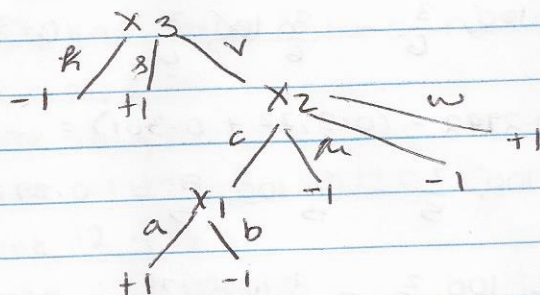 X 3
k s v
-1 +1 X2 w
c m -1 +1
X1 -1
a b
+1 -1